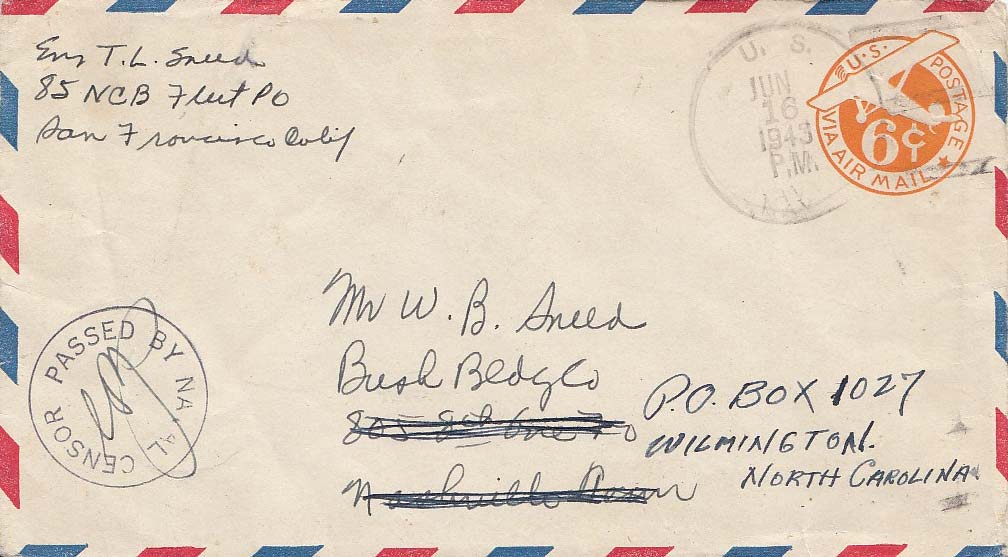 Ens T. L. Sneed
85 NCB Fleet PO
San Francisco Calif
U. S.
JUN
16
1943
P.M.
U.S. POSTAGE
6¢
VIA AIR MAIL
Mr W. B. Sneed
Bush Bldg Co
805 8th Ave So
Nashville Tenn
P.O. BOX 1027
WILMINGTON.
NORTH CAROLINA
PASSED BY NAVAL CENSOR